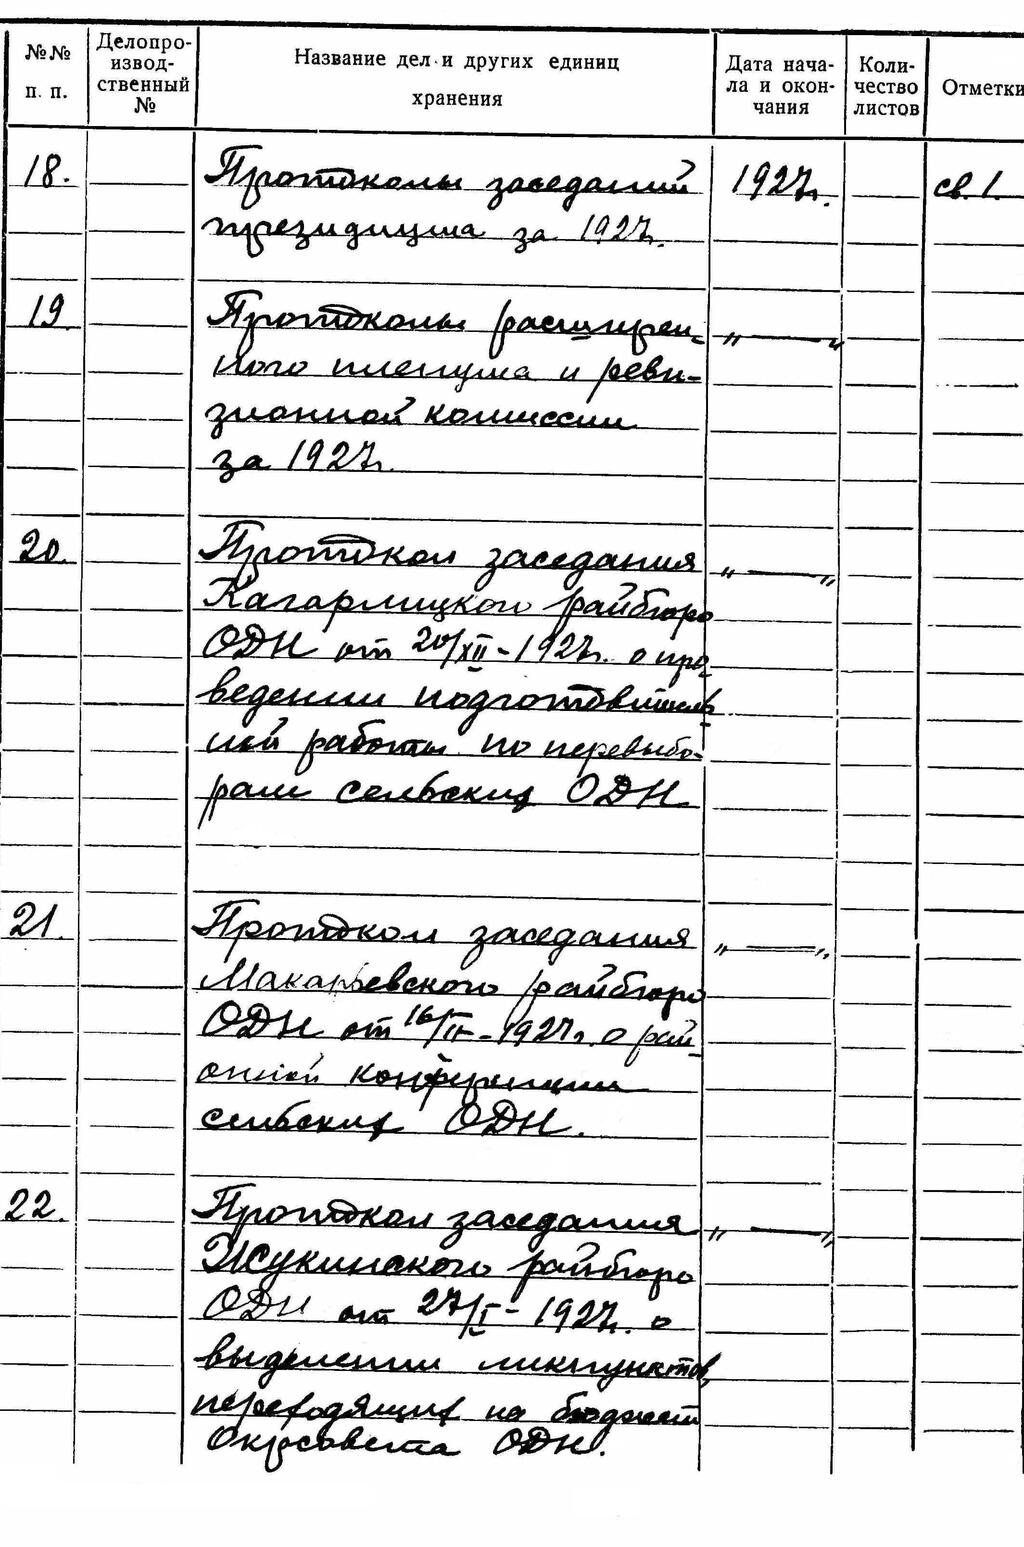 №№ п. п.
Делопро-
извод-
ственный
№
Название дел и других единиц
хранения
Дата нача-
ла и окон-
чания
Коли-
чество
листов
Отметки
18. Протоколы заседаний 1927г. св. 1.
президиума за 1927г.
19. Протоколы расширен- „ — „
ного пленума и реви-
зионной комиссии
за 1927г.
20. Протокол заседания „ — „
Кагарлицкого райбюро
ОДН от 20/XII-1927г. о про-
ведении подготовитель-
ной работы по перевыбо-
рам сельских ОДН
21. Протокол заседания „ — „
Макарьевского райбюро
ОДН от 16/II-1927г. о рай-
онной конференции
сельских ОДН.
22. Протокол заседания „ — „
Жукинского райбюро
ОДН от 27/I-1927г. о
выделении ликпунктов,
переходящих на бюджет
Окрсовета ОДН.